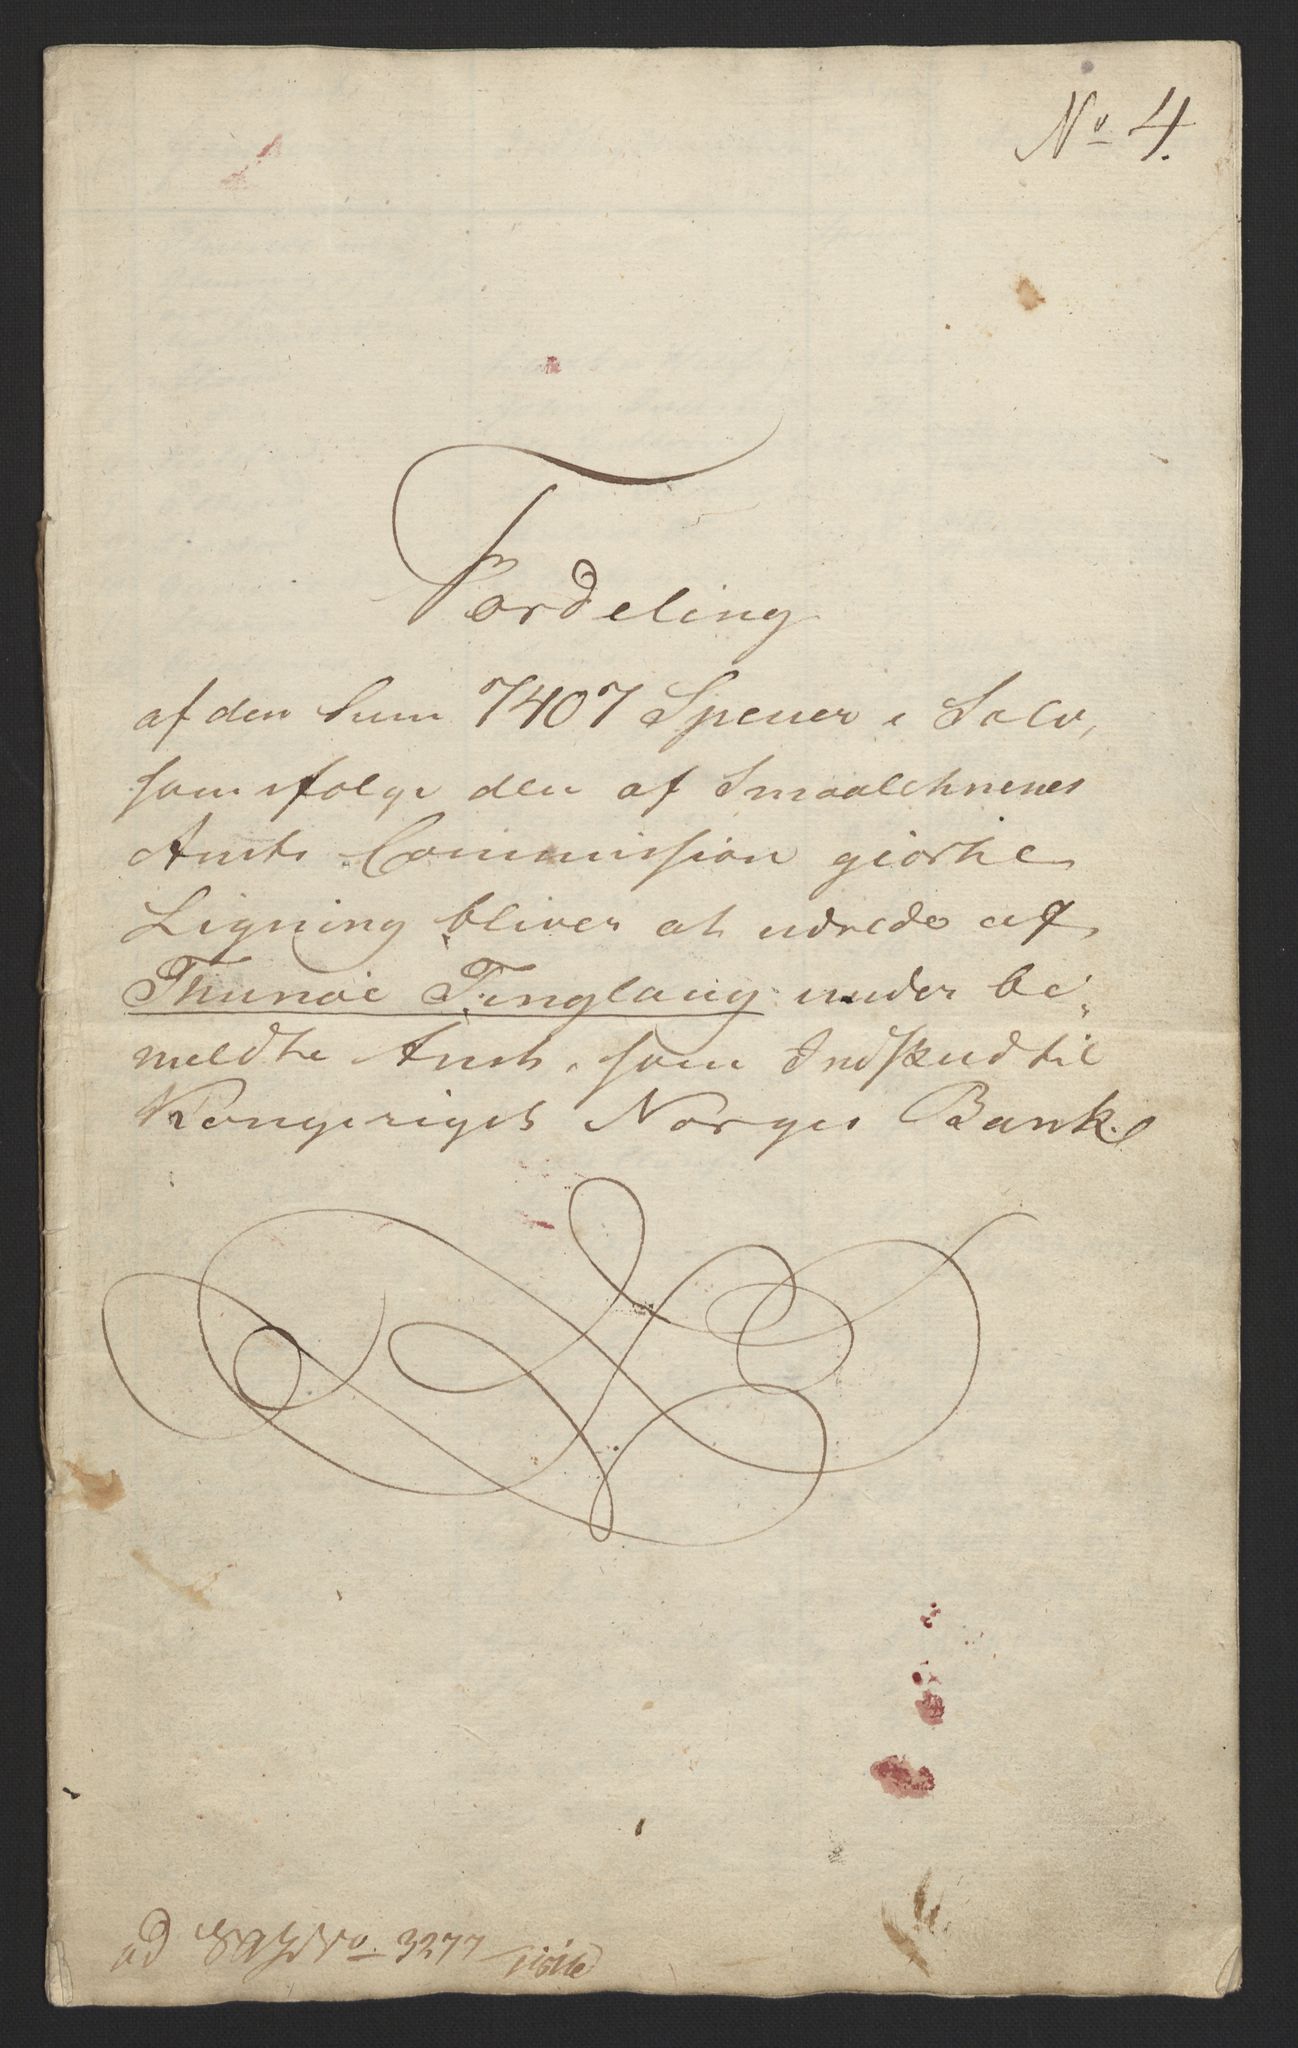 No 4.
Fordeling
af den Sum 7407 Specier i Sølv,
som ifølge den af Smaalehnenes
Amts Commission giorte
Ligning bliver at udrede af
Thunøe Tinglaug under be-
meldte Amt, som Indskud til
Kongeriget Norges Bank.
ad No 3277